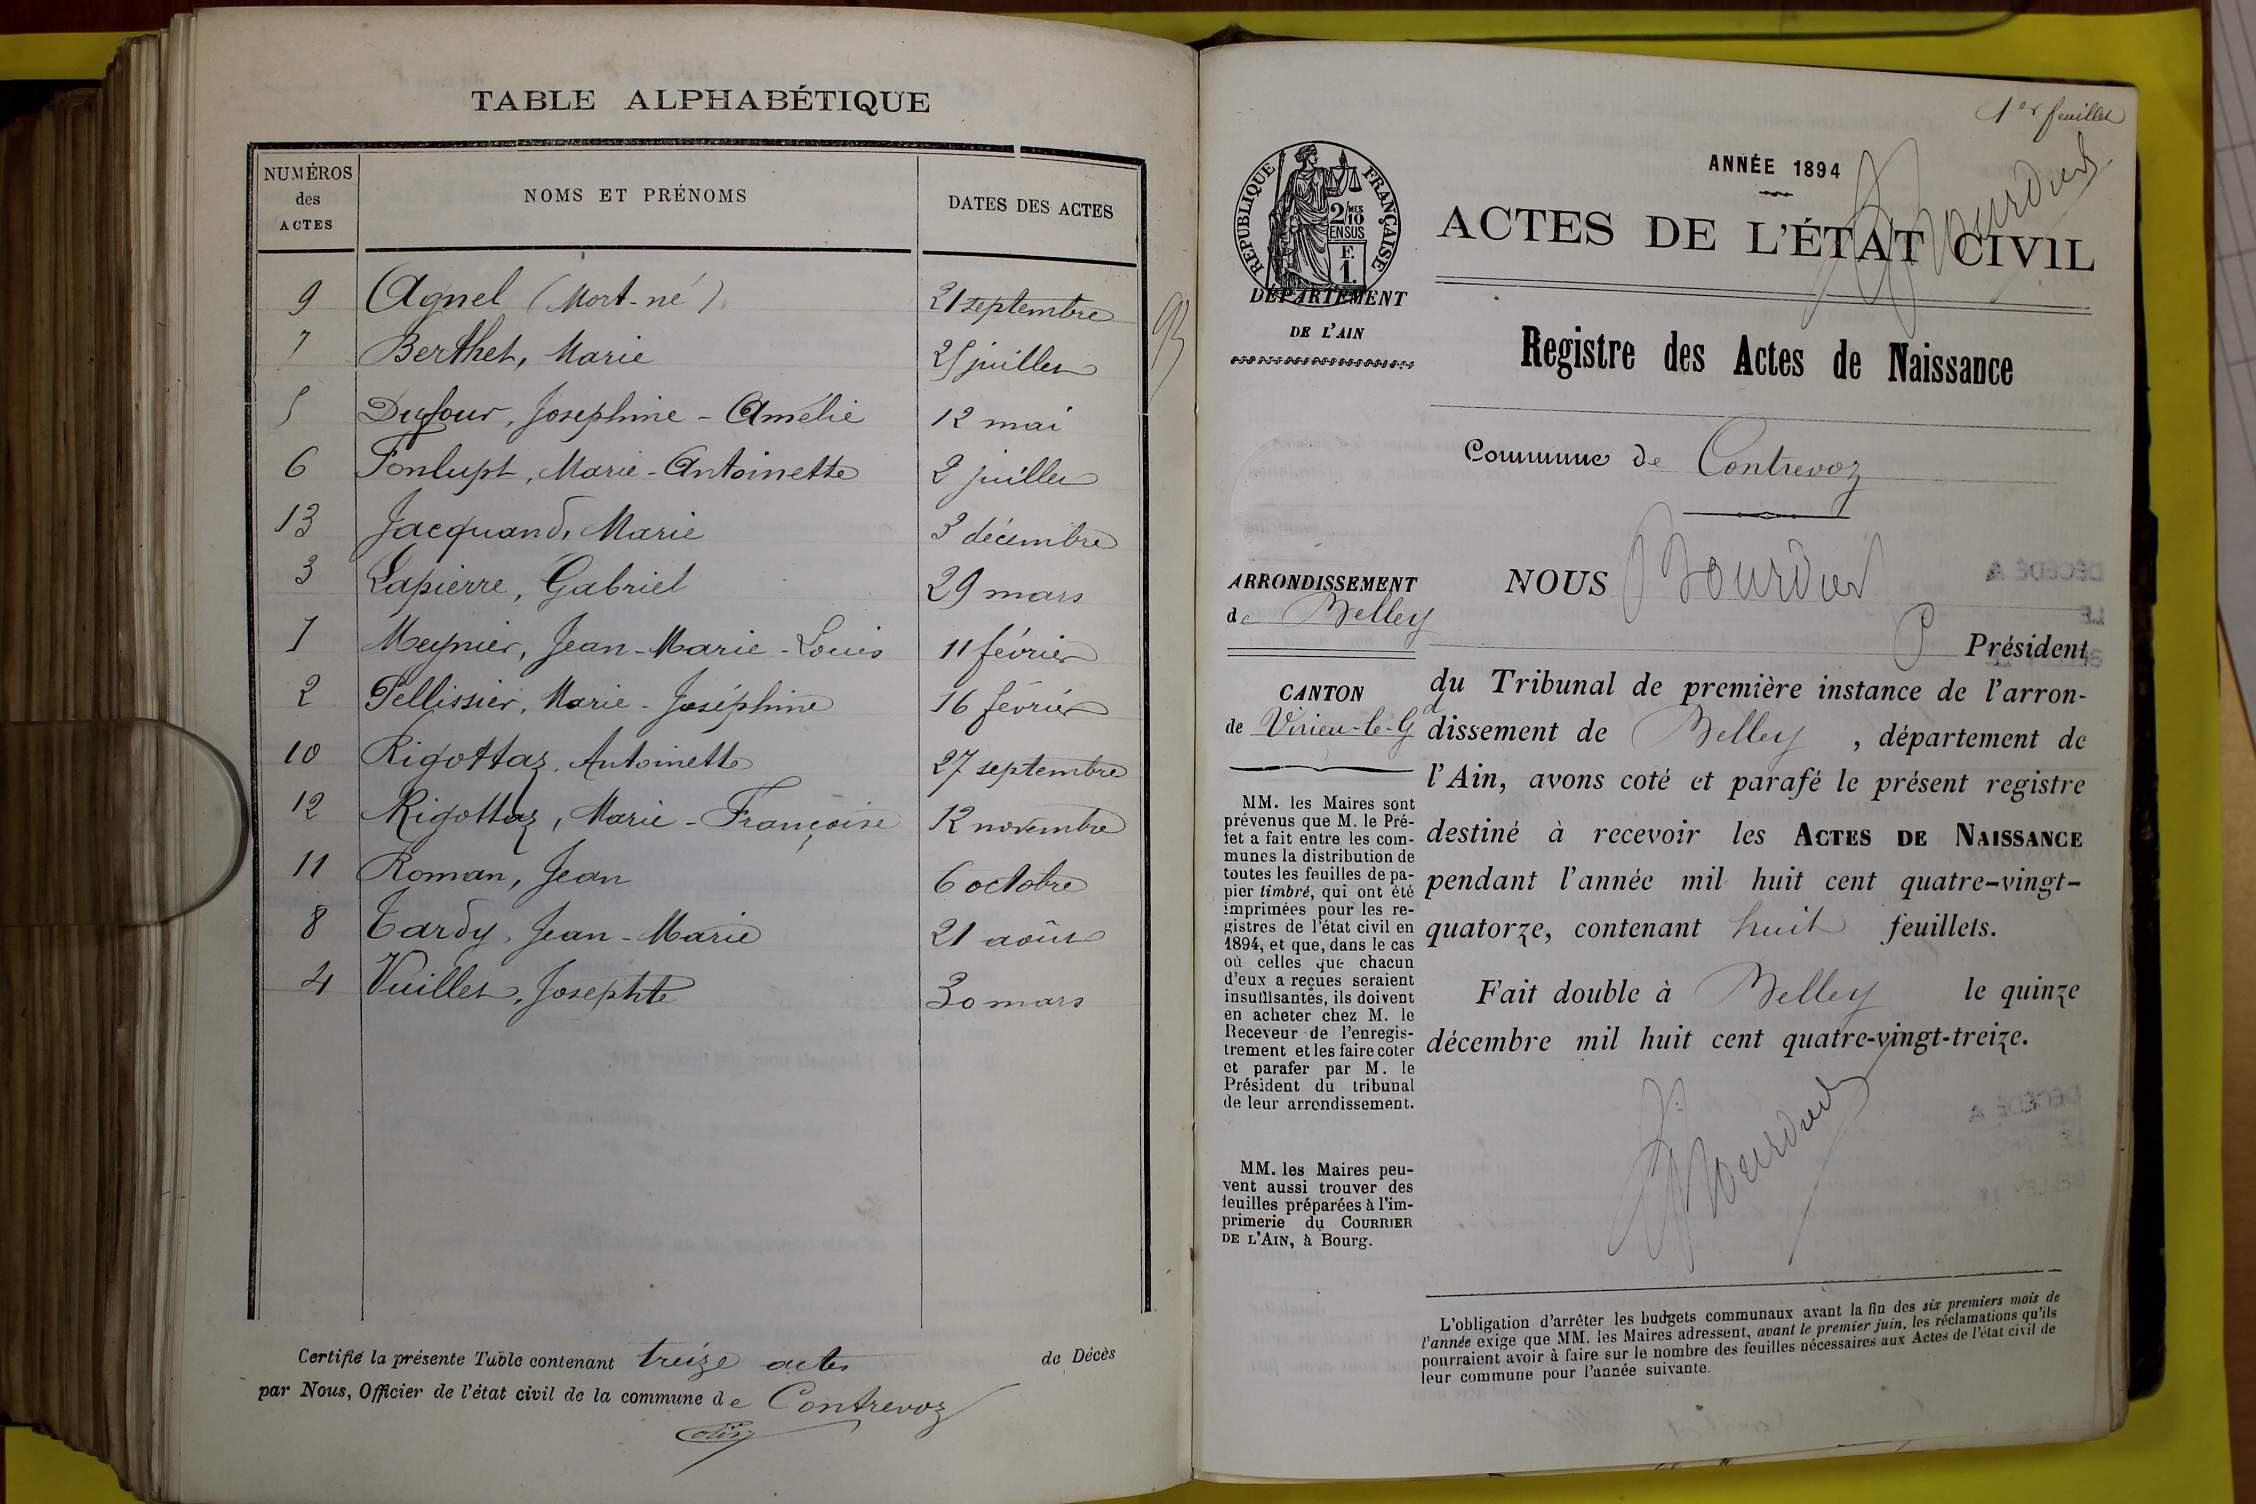 TABLE ALPHABÉTIQUE
NUMÉROS des ACTES
NOMS ET PRÉNOMS
DATES DES ACTES
9 Agnel (Mort-né) 21 septembre
7 Berthet, Marie 25 juillet
5 Dufour, Joséphine - Amélie 12 mai
6 Fonlupt, Marie-Antoinette 2 juillet
13 Jacquand, Marie 3 décembre
3 Lapierre, Gabriel 29 mars
1 Meynier, Jean-Marie-Louis 11 février
2 Pellissier, Marie-Joséphine 16 février
10 Rigottaz, Antoinette 27 septembre
12 Rigottaz, Marie-Françoise 12 novembre
11 Roman, Jean 6 octobre
8 Tardy, Jean-Marie 21 août
4 Vuillet, Josephte 30 mars
93
Certifié la présente Table contenant treize actes de Décès
par Nous, Officier de l'état civil de la commune de Contrevoz
1er feuillet
Bourdin
ANNÉE 1894
ACTES DE L'ÉTAT CIVIL
RÉPUBLIQUE FRANÇAISE
2/10MES
EN SUS
F.
1.
DÉPARTEMENT
DE L'AIN
Registre des Actes de Naissance
Commune de Contrevoz
ARRONDISSEMENT
de Belley
CANTON
de Virieu-le-Gd
MM. les Maires sont
prévenus que M. le Pré-
fet a fait entre les com-
munes la distribution de
toutes les feuilles de pa-
pier timbré, qui ont été
imprimées pour les re-
gistres de l'état civil en
1894, et que, dans le cas
où celles que chacun
d'eux a reçues seraient
insuffisantes, ils doivent
en acheter chez M. le
Receveur de l'enregis-
trement et les faire coter
et parafer par M. le
Président du tribunal
de leur arrondissement.
MM. les Maires peu-
vent aussi trouver des
feuilles préparées à l'im-
primerie du COURRIER
DE L'AIN, à Bourg.
NOUS Bourdin
P Président
du Tribunal de première instance de l'arron-
dissement de Belley, département de
l'Ain, avons coté et parafé le présent registre
destiné à recevoir les ACTES DE NAISSANCE
pendant l'année mil huit cent quatre-vingt-
quatorze, contenant huit feuillets.
Fait double à Belley le quinze
décembre mil huit cent quatre-vingt-treize.
Bourdin
L'obligation d'arrêter les budgets communaux avant la fin des six premiers mois de
l'année exige que MM. les Maires adressent, avant le premier juin, les réclamations qu'ils
pourraient avoir à faire sur le nombre des feuilles nécessaires aux Actes de l'état civil de
leur commune pour l'année suivante.